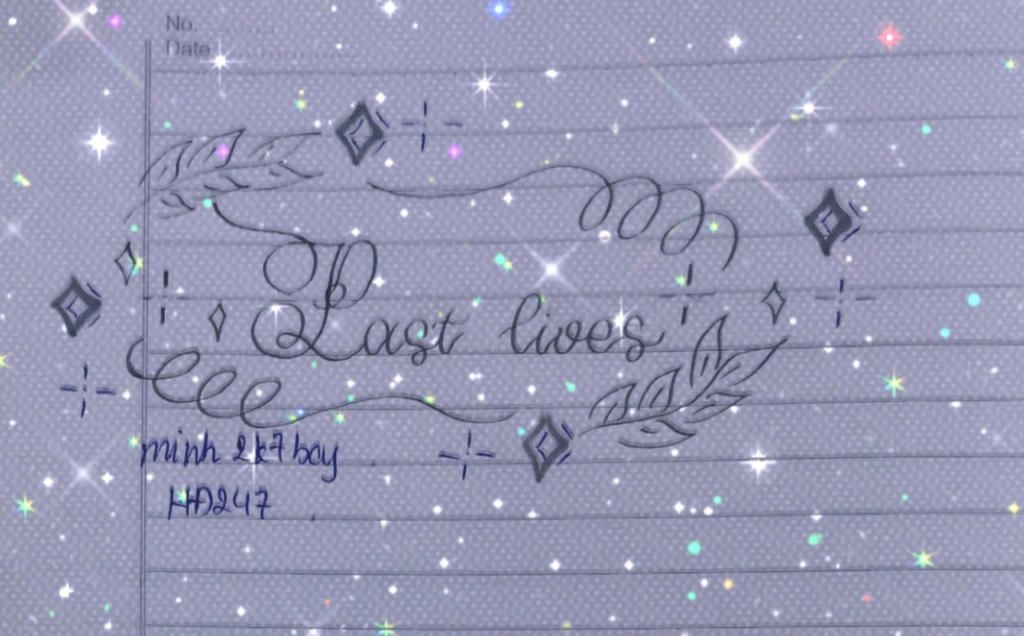 No.
Date
Past lives
minh 2k7 boy
HD247